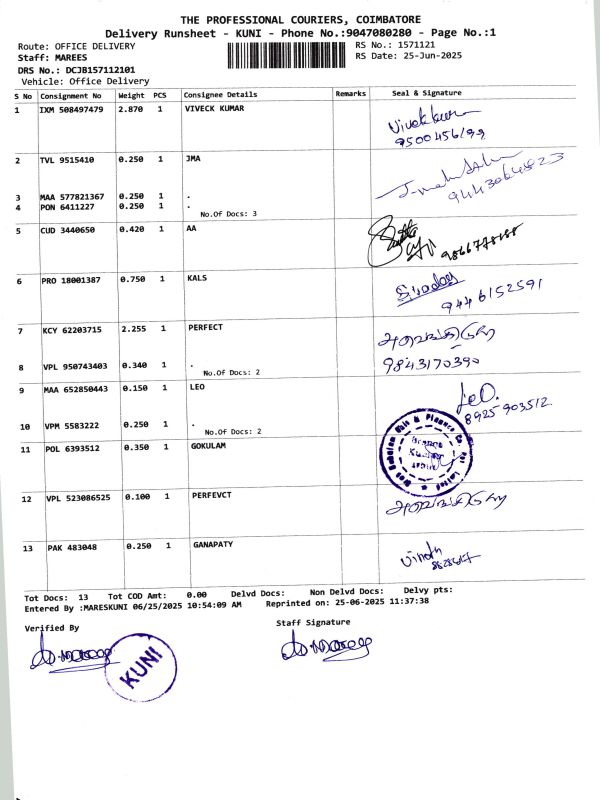 THE PROFESSIONAL COURIERS, COIMBATORE
Delivery Runsheet - KUNI - Phone No.:9047080280 - Page No.:1
Route: OFFICE DELIVERY
RS No.: 1571121
Staff: MAREES
RS Date: 25-Jun-2025
DRS No.: DCJB157112101
Vehicle: Office Delivery
S No Consignment No Weight PCS Consignee Details Remarks Seal & Signature
1 IXM 508497479 2.870 1 VIVECK KUMAR
Vivek kumar
9500456199
2 TVL 9515410 0.250 1 JMA
9443064823
3 MAA 577821367 0.250 1 .
4 PON 6411227 0.250 1 .
No.Of Docs: 3
5 CUD 3440650 0.420 1 AA
6 PRO 18001387 0.750 1 KALS
9446152591
7 KCY 62203715 2.255 1 PERFECT
9843170390
8 VPL 950743403 0.340 1 .
No.Of Docs: 2
9 MAA 652850443 0.150 1 LEO
Leo.
8925903512
10 VPM 5583222 0.250 1 .
No.Of Docs: 2
11 POL 6393512 0.350 1 GOKULAM
12 VPL 523086525 0.100 1 PERFEVCT
13 PAK 483048 0.250 1 GANAPATY
Vinoth
Tot Docs: 13 Tot COD Amt: 0.00 Delvd Docs: Non Delvd Docs: Delvy pts:
Entered By :MARESKUNI 06/25/2025 10:54:09 AM Reprinted on: 25-06-2025 11:37:38
Verified By
Staff Signature
KUNI